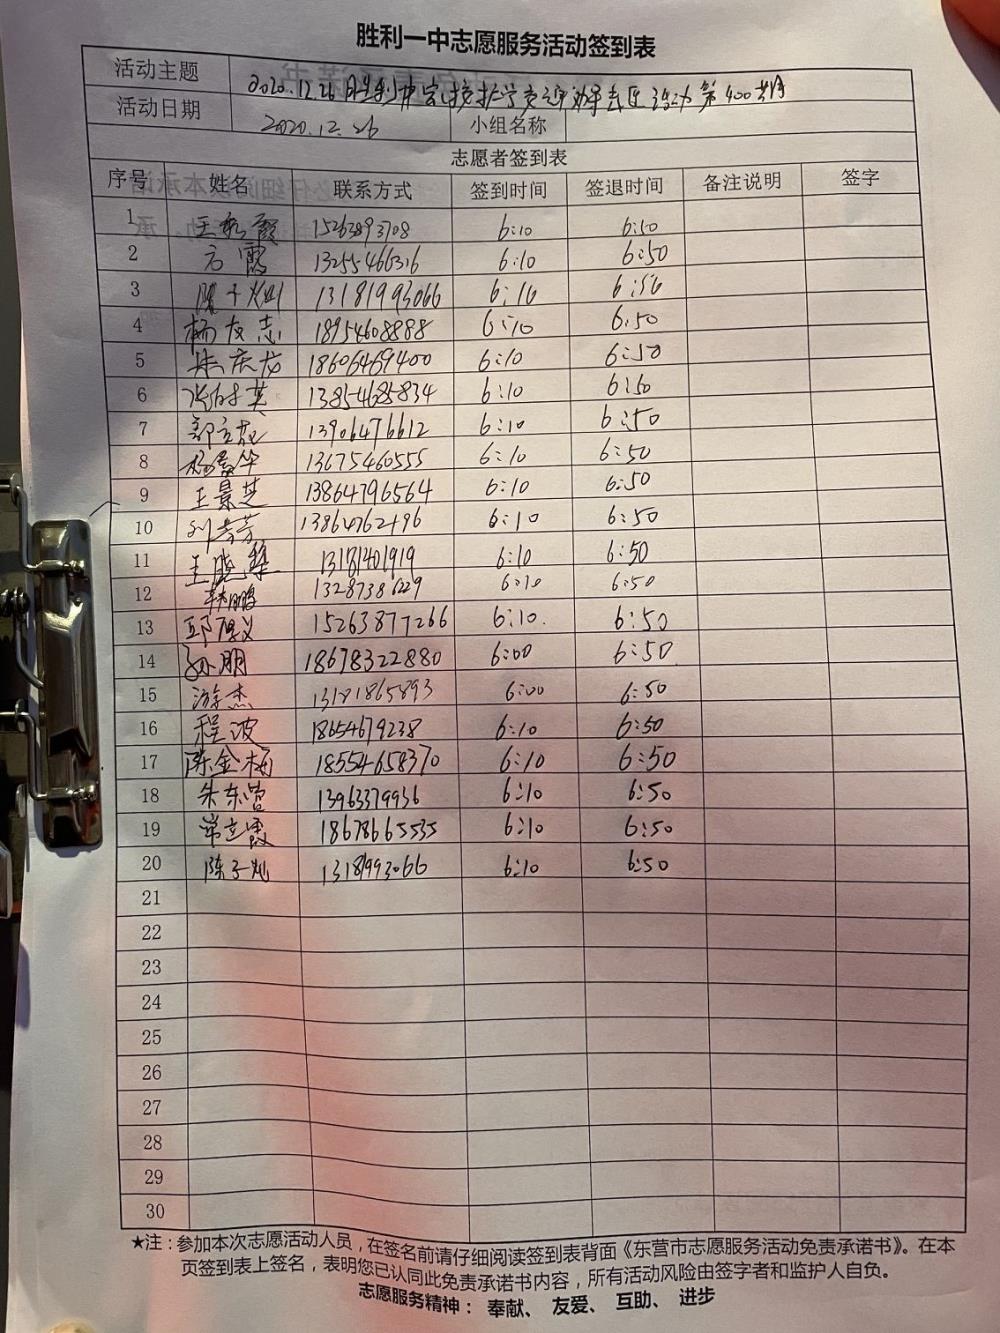 胜利一中志愿服务活动签到表
活动主题 2020.12.26 胜利 第400期
活动日期 2020.12.26 小组名称
志愿者签到表
序号 姓名 联系方式 签到时间 签退时间 备注说明 签字
1 霞 15263893708 6:10 6:50
2 方霞 13255466316 6:10 6:50
3 13181993066 6:10 6:50
4 杨友志 18954608888 6:10 6:50
5 庆龙 18606469400 6:10 6:50
6 英 13854685834 6:10 6:50
7 郭立花 13906476612 6:10 6:50
8 杨 华 13675460555 6:10 6:50
9 王景芝 13864796564 6:10 6:50
10 刘芳芳 13864762196 6:10 6:50
11 王晓 13181401919 6:10 6:50
12 鹏 13287386229 6:10 6:50
13 邱 义 15263877266 6:10. 6:50
14 孙朋 18678322880 6:00 6:50
15 游杰 13181865893 6:00 6:50
16 程波 18654679238 6:10 6:50
17 陈金梅 18554658370 6:10 6:50
18 朱东营 13963379936 6:10 6:50
19 常立霞 18678665535 6:10 6:50
20 陈子 13181993066 6:10 6:50
21
22
23
24
25
26
27
28
29
30
★注：参加本次志愿活动人员，在签名前请仔细阅读签到表背面《东营市志愿服务活动免责承诺书》。在本
页签到表上签名，表明您已认同此免责承诺书内容，所有活动风险由签字者和监护人自负。
志愿服务精神： 奉献、 友爱、 互助、 进步